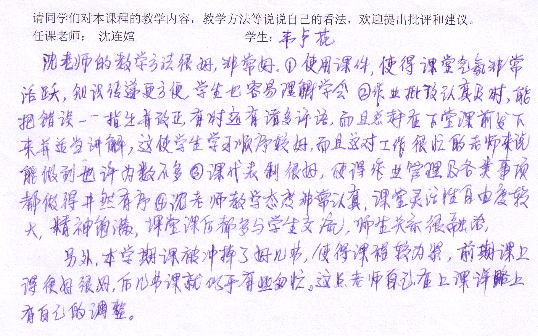 请同学们对本课程的教学内容，教学方法等说说自己的看法，欢迎提出批评和建议。
任课老师： 沈连婠 学生：韦卢花
沈老师的教学方法很好，非常好。①使用课件，使得课堂气氛非常
活跃，知识传递更方便，学生也容易理解学会②作业批改认真及时，能
把错误一一指出并改正，有对还有语多评语，而且总好在下堂课前记下
来并适当讲解，这使学生学习顺序较好，而且这对工作很忙的老师来说
能做到也许为数不多③课代表制很好，使得作业管理及各类事项
都做得井然有序④沈老师教学态度非常认真，课堂灵活性自由度较
大，精神饱满，课堂课后都多与学生交流，师生关系很融洽。
另外，本学期课被冲掉了好几节，使得课程较为紧，前期课上
得很好很好，后几节课就似乎有些匆忙。这点老师自己在上课详略上
有自己的调整。